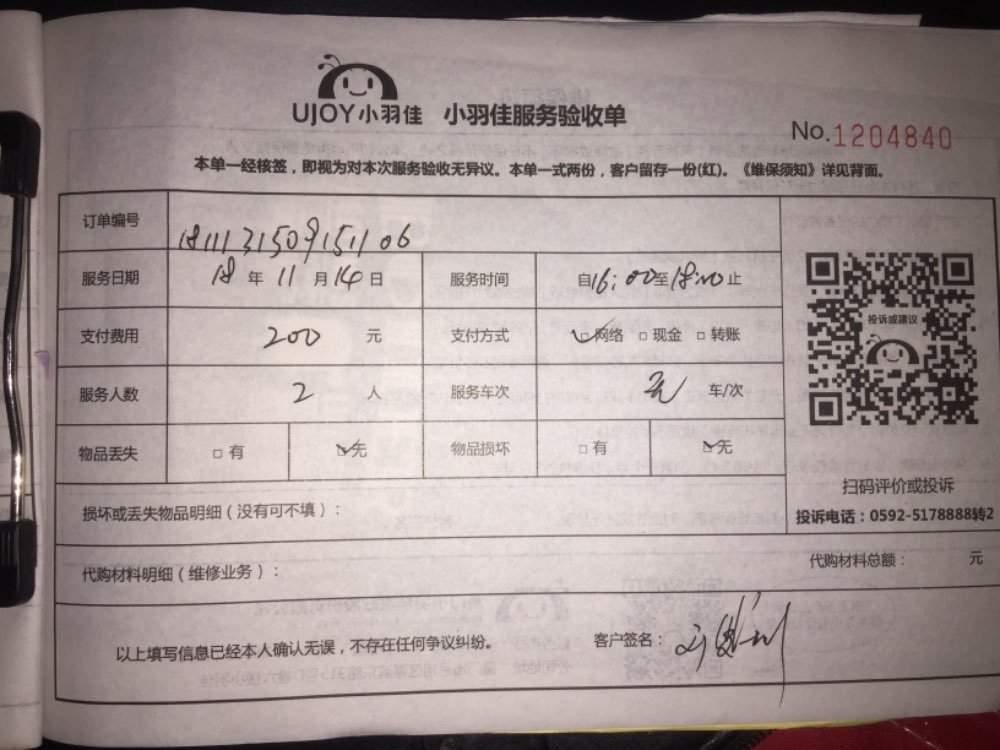 UJOY小羽佳 小羽佳服务验收单
No.1204840
本单一经核签，即视为对本次服务验收无异议。本单一式两份，客户留存一份(红)。《维保须知》详见背面。
订单编号 1811131509151106
服务日期 18 年 11 月 14 日 服务时间 自16:00至18:00止
投诉或建议
支付费用 200 元 支付方式 □网络 □现金 □转账
服务人数 2 人 服务车次 无 车/次
物品丢失 □有 □无 物品损坏 □有 □无
扫码评价或投诉
损坏或丢失物品明细（没有可不填）：
投诉电话：0592-5178888转2
代购材料明细（维修业务）： 代购材料总额： 元
以上填写信息已经本人确认无误，不存在任何争议纠纷。 客户签名：